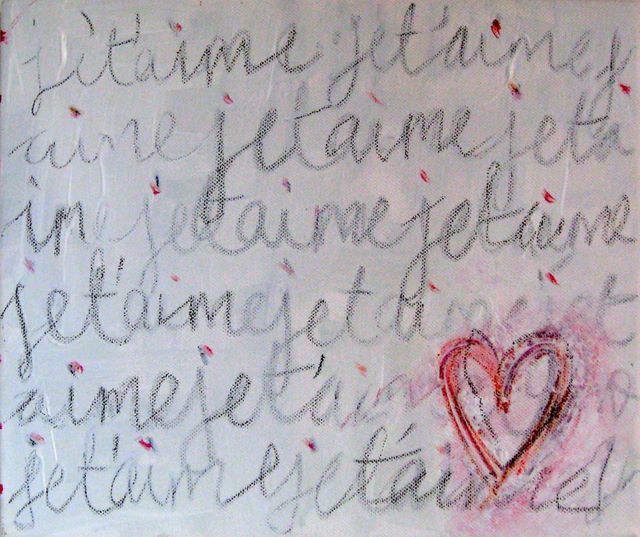 je t'aime je t'aime j
aime je t'aime je t a
ime je t aime je t aime
je t'aime je t aime je t
aime je t'aime
je t'aime je t'aime